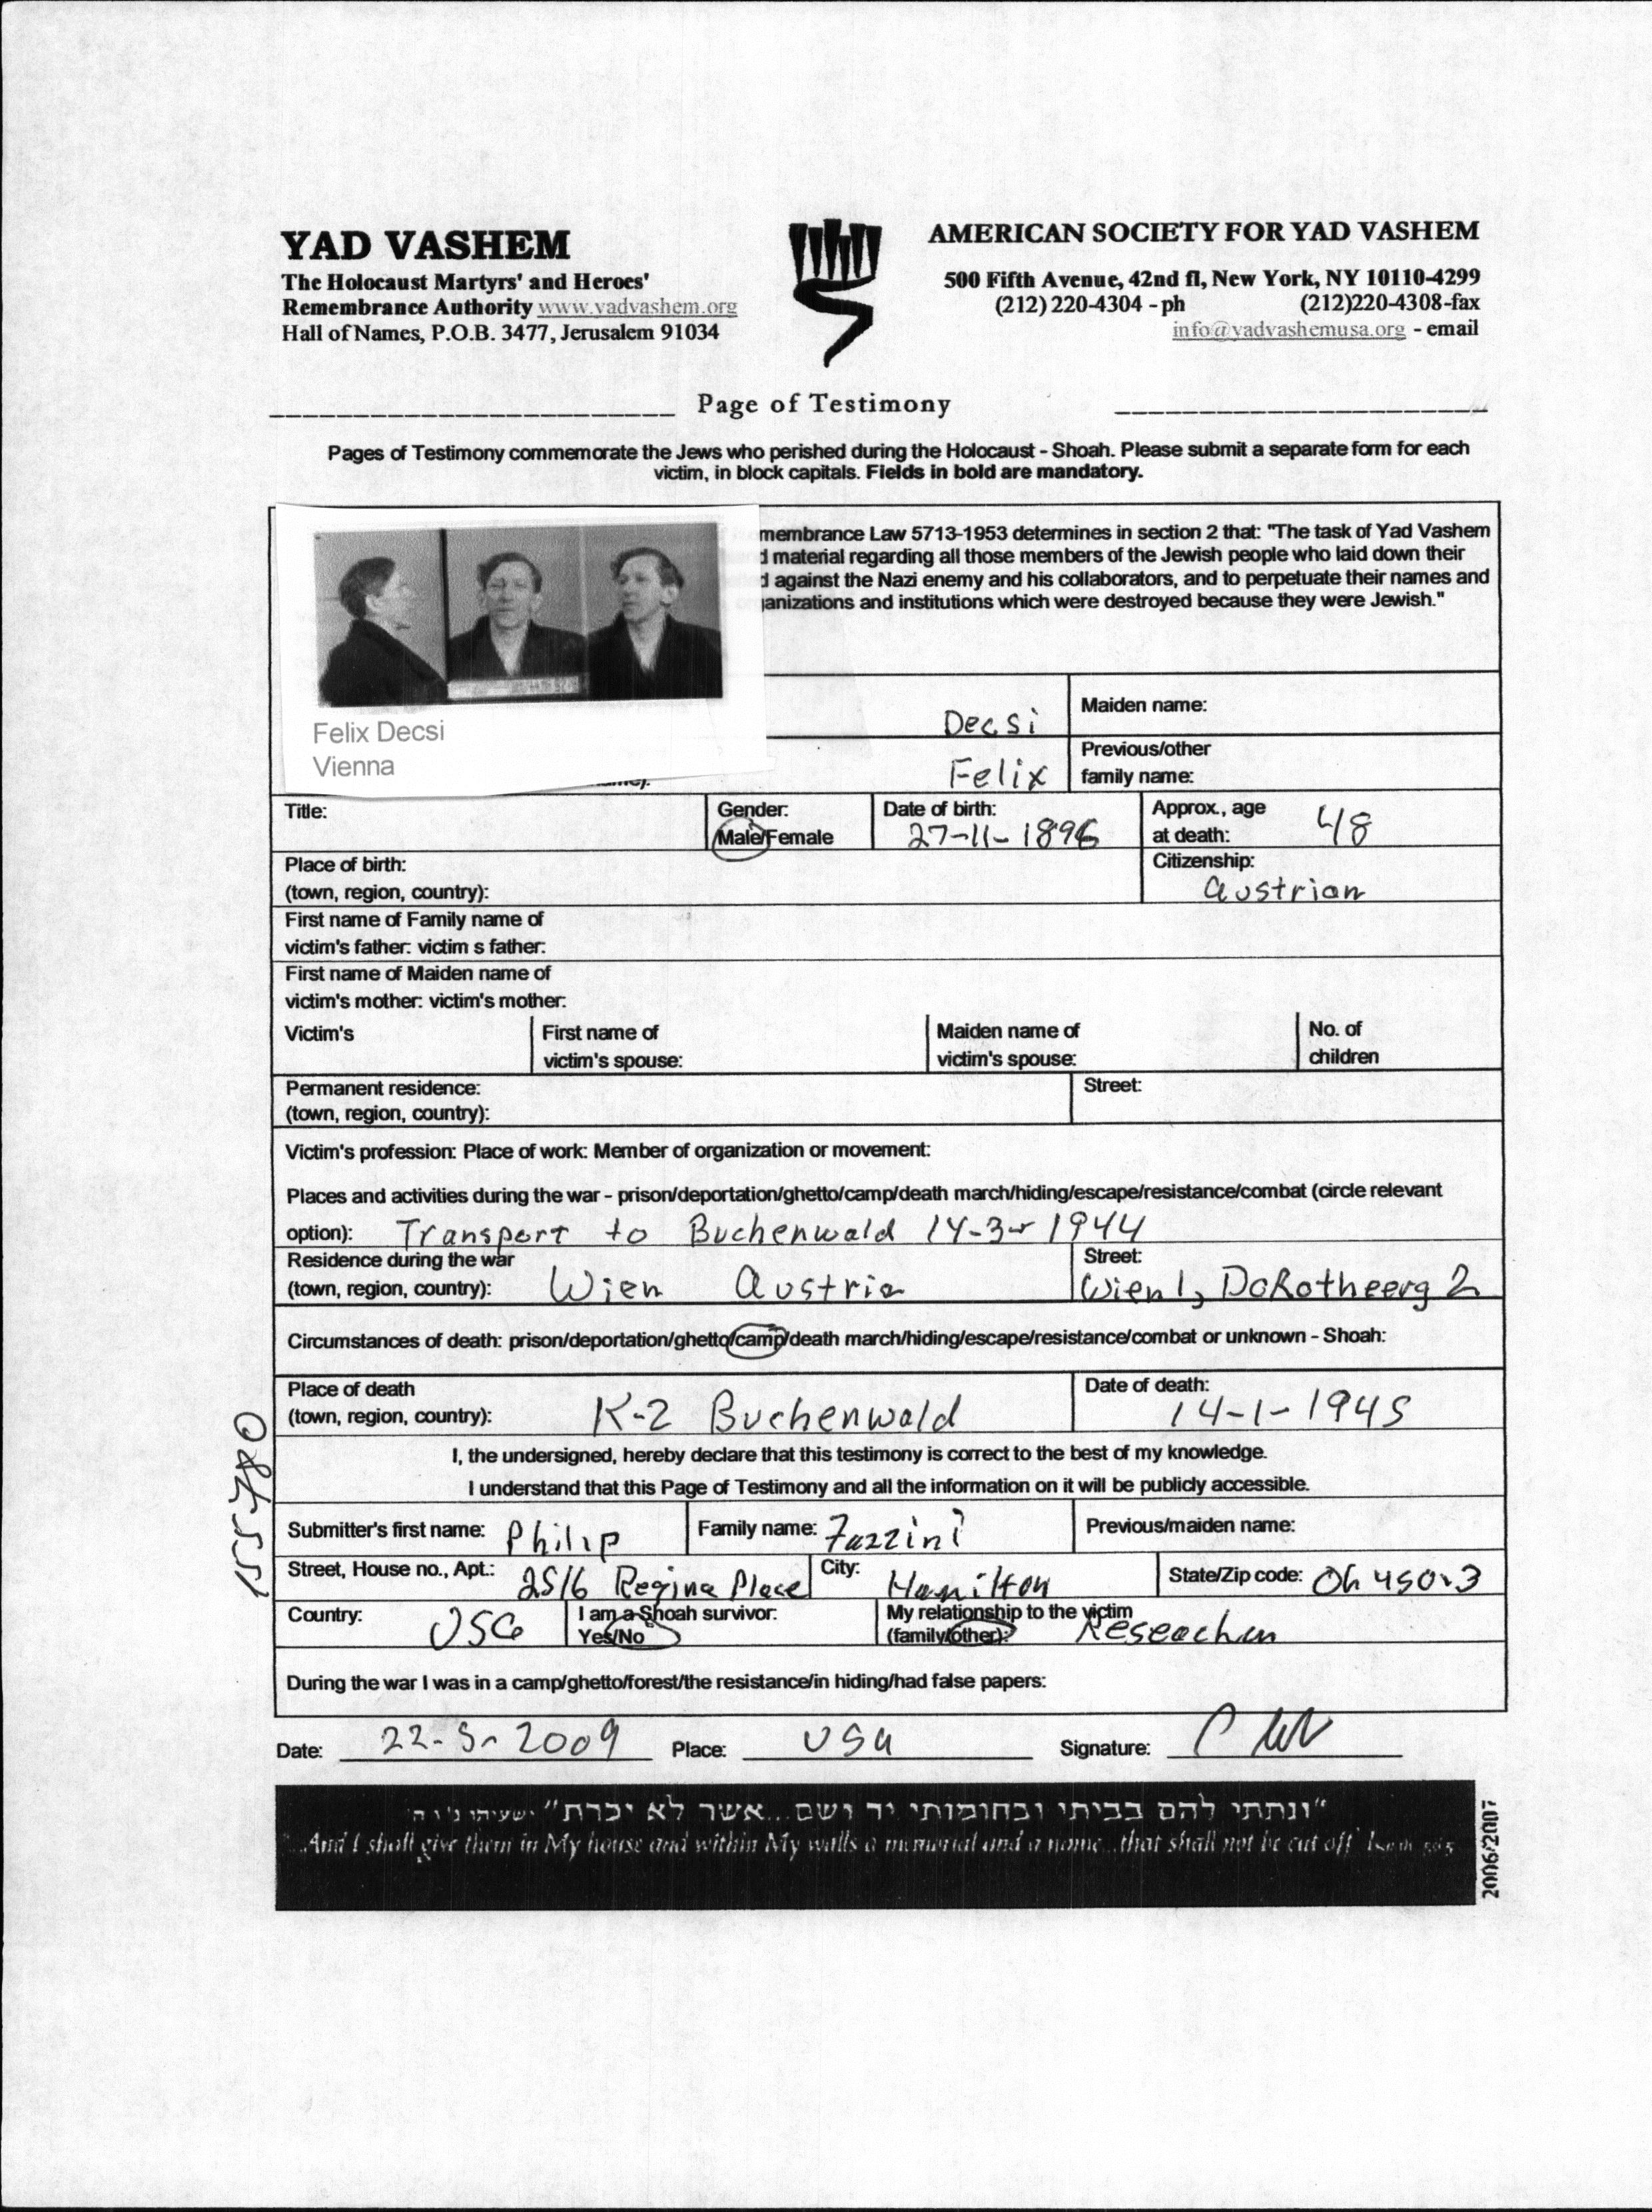 YAD VASHEM
The Holocaust Martyrs' and Heroes'
Remembrance Authority www.yadvashem.org
Hall of Names, P.O.B. 3477, Jerusalem 91034
AMERICAN SOCIETY FOR YAD VASHEM
500 Fifth Avenue, 42nd fl, New York, NY 10110-4299
(212) 220-4304 - ph (212)220-4308-fax
info@yadvashemusa.org - email
Page of Testimony
Pages of Testimony commemorate the Jews who perished during the Holocaust - Shoah. Please submit a separate form for each
victim, in block capitals. Fields in bold are mandatory.
membrance Law 5713-1953 determines in section 2 that: "The task of Yad Vashem
material regarding all those members of the Jewish people who laid down their
against the Nazi enemy and his collaborators, and to perpetuate their names and
ganizations and institutions which were destroyed because they were Jewish."
Felix Decsi
Vienna
Decsi
Maiden name:
Felix
Previous/other
family name:
Title:
Gender:
Male/Female
Date of birth:
27-11-1896
Approx., age
at death: 48
Place of birth:
(town, region, country):
Citizenship:
Austrian
First name of Family name of
victim's father: victim s father:
First name of Maiden name of
victim's mother: victim's mother:
Victim's
First name of
victim's spouse:
Maiden name of
victim's spouse:
No. of
children
Permanent residence:
(town, region, country):
Street:
Victim's profession: Place of work: Member of organization or movement:
Places and activities during the war - prison/deportation/ghetto/camp/death march/hiding/escape/resistance/combat (circle relevant
option): Transport to Buchenwald 14-3-1944
Residence during the war
(town, region, country): Wien Austria
Street:
Wien 1, DoRotheerg 2
Circumstances of death: prison/deportation/ghetto/camp/death march/hiding/escape/resistance/combat or unknown - Shoah:
Place of death
(town, region, country): K-2 Buchenwald
Date of death:
14-1-1945
I, the undersigned, hereby declare that this testimony is correct to the best of my knowledge.
I understand that this Page of Testimony and all the information on it will be publicly accessible.
155780
Submitter's first name: Philip
Family name: Fazzini
Previous/maiden name:
Street, House no., Apt.: 2516 Regina Place
City: Hamilton
State/Zip code: Oh 45013
Country: USA
I am a Shoah survivor:
Yes/No
My relationship to the victim
(family/other):
During the war I was in a camp/ghetto/forest/the resistance/in hiding/had false papers:
Date: 22-5-2009 Place: USA Signature:
"ונתתי להם בביתי ובחומותי יד ושם...אשר לא יכרת" ישעיהו נ"ו ה'
...And I shall give them in My house and within My walls a memorial and a name...that shall not be cut off Isaiah 56:5
2006/2007